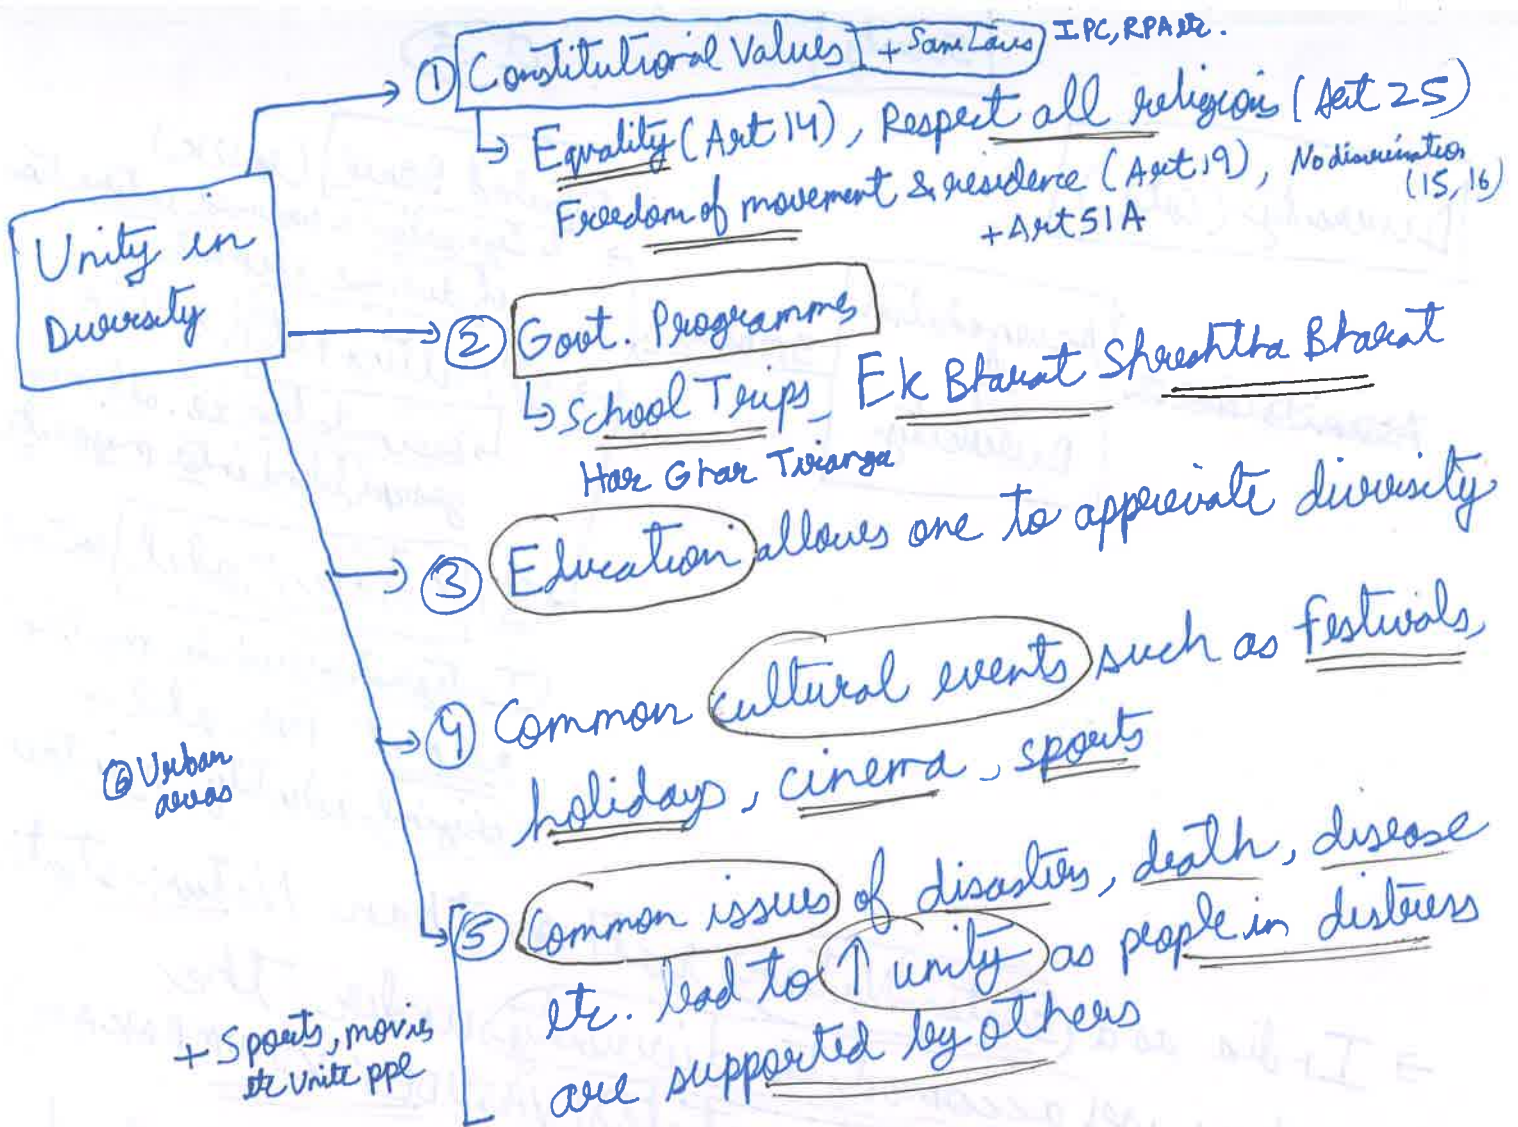 ① Constitutional Values + Same Laws IPC, RPA etc.
↳ Equality (Art 14), Respect all religions (Art 25)
Freedom of movement & residence (Art 19), No discrimination (15, 16)
+ Art 51A
Unity in
Diversity
② Govt. Programmes
↳ School Trips, Ek Bharat Shreshtha Bharat
Har Ghar Tiranga
③ Education allows one to appreciate diversity
④ Common cultural events such as festivals,
holidays, cinema, sports
⑥ Urban
areas
⑤ Common issues of disasters, death, disease
etc. lead to ↑ unity as people in distress
are supported by others
+ Sports, movies
etc unite ppl